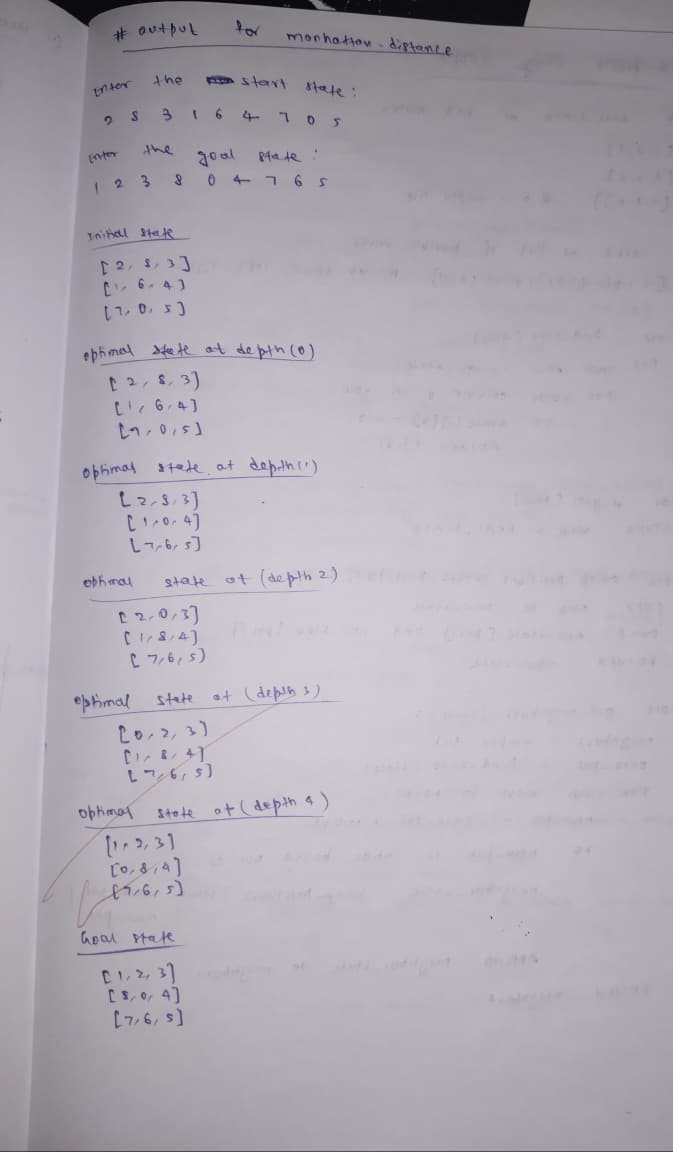 # output for manhattan-distance
Enter the start state:
2 8 3 1 6 4 7 0 5
Enter the goal state:
1 2 3 8 0 4 7 6 5
Initial state
[2, 8, 3]
[1, 6, 4]
[7, 0, 5]
optimal state at depth(0)
[2, 8, 3]
[1, 6, 4]
[7, 0, 5]
optimal state at depth(1)
[2, 8, 3]
[1, 0, 4]
[7, 6, 5]
optimal state at (depth 2)
[2, 0, 3]
[1, 8, 4]
[7, 6, 5]
optimal state at (depth 3)
[0, 2, 3]
[1, 8, 4]
[7, 6, 5]
optimal state at (depth 4)
[1, 2, 3]
[0, 8, 4]
[7, 6, 5]
Goal state
[1, 2, 3]
[8, 0, 4]
[7, 6, 5]